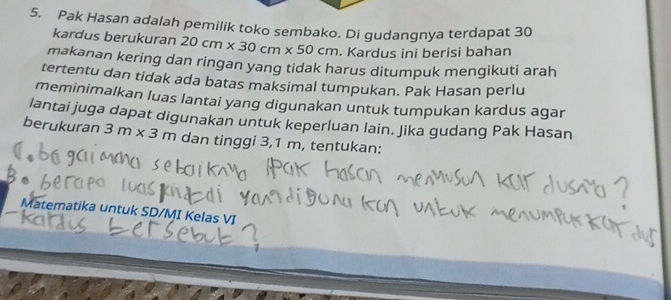 5. Pak Hasan adalah pemilik toko sembako. Di gudangnya terdapat 30
kardus berukuran 20 cm x 30 cm x 50 cm. Kardus ini berisi bahan
makanan kering dan ringan yang tidak harus ditumpuk mengikuti arah
tertentu dan tidak ada batas maksimal tumpukan. Pak Hasan perlu
meminimalkan luas lantai yang digunakan untuk tumpukan kardus agar
lantai juga dapat digunakan untuk keperluan lain. Jika gudang Pak Hasan
berukuran 3 m x 3 m dan tinggi 3,1 m, tentukan:
sebaiknya pak hasan menyusun kardusnya?
B. luas yang digunakan untuk menumpuk kardus
Matematika untuk SD/MI Kelas VI
-kardus tersebut?